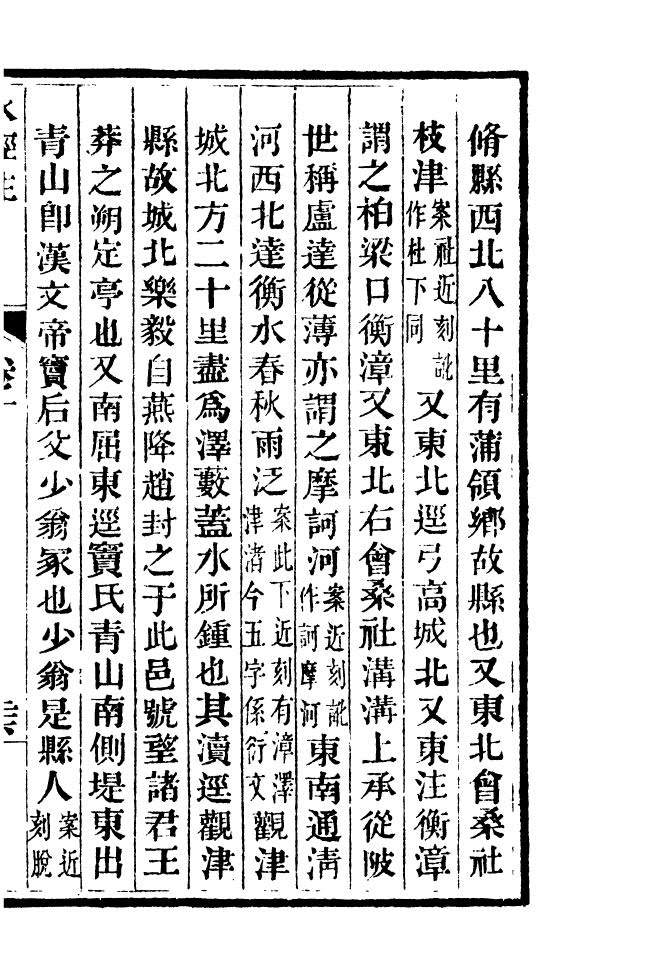 脩縣西北八十里有蒲領鄉故縣也又東北會桑社
枝津案社近刻訛作杜下同又東北逕弓高城北又東注衡漳
謂之柏梁口衡漳又東北右會桑社溝溝上承從陂
世稱盧達從薄亦謂之摩訶河案近刻訛作訶摩河東南通淸
河西北達衡水春秋雨泛案此下近刻有漳澤津渚今五字係衍文觀津
城北方二十里盡爲澤藪蓋水所鍾也其瀆逕觀津
縣故城北樂毅自燕降趙封之于此邑號望諸君王
莽之朔定亭也又南屈東逕竇氏靑山南側堤東出
靑山卽漢文帝竇后父少翁冢也少翁是縣人案近刻脫
水經注 卷十